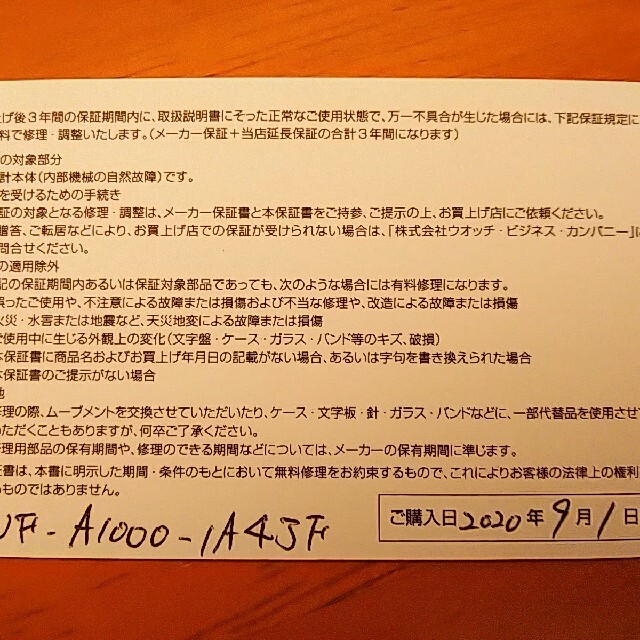 げ後3年間の保証期間内に、取扱説明書にそった正常なご使用状態で、万一不具合が生じた場合には、下記保証規定に
料で修理・調整いたします。(メーカー保証+当店延長保証の合計3年間になります)
の対象部分
計本体(内部機械の自然故障)です。
を受けるための手続き
証の対象となる修理・調整は、メーカー保証書と本保証書をご持参、ご提示の上、お買上げ店にご依頼ください。
贈答、ご転居などにより、お買上げ店での保証が受けられない場合は、「株式会社ウオッチ・ビジネス・カンパニー」に
問合せください。
の適用除外
記の保証期間内あるいは保証対象部品であっても、次のような場合には有料修理になります。
誤ったご使用や、不注意による故障または損傷および不当な修理や、改造による故障または損傷
火災・水害または地震など、天災地変による故障または損傷
ご使用中に生じる外観上の変化(文字盤・ケース・ガラス・バンド等のキズ、破損)
本保証書に商品名およびお買上げ年月日の記載がない場合、あるいは字句を書き換えられた場合
本保証書のご提示がない場合
他
修理の際、ムーブメントを交換させていただいたり、ケース・文字板・針・ガラス・バンドなどに、一部代替品を使用させ
いただくこともありますが、何卒ご了承ください。
修理用部品の保有期間や、修理のできる期間などについては、メーカーの保有期間に準じます。
証書は、本書に明示した期間・条件のもとにおいて無料修理をお約束するもので、これによりお客様の法律上の権利
ものではありません。
WF-A1000-1A4JF
ご購入日2020年9月1日